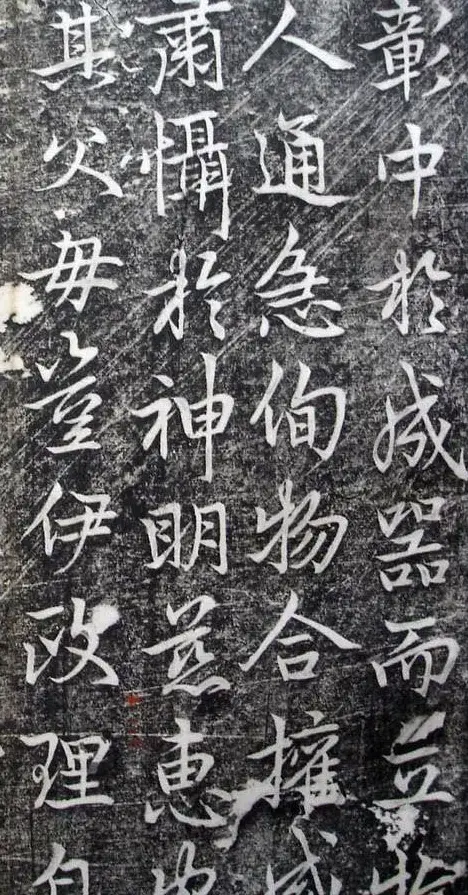 彰中於成器而立
人通急徇物合擁威
肅懾於神明慈惠
其父毋豈伊政理自